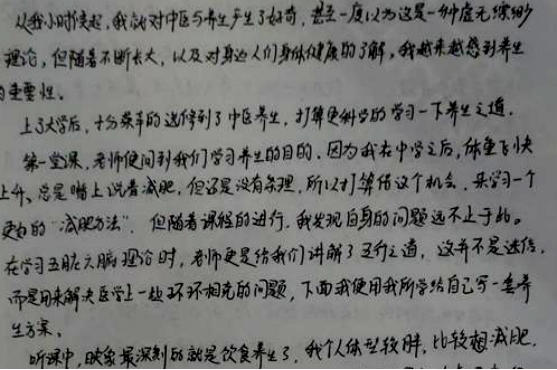 从我小时候起，我就对中医与养生产生了好奇，甚至一度以为这是一种虚无缥缈
理论，但随着不断长大，以及对身边人们身体健康的了解，我越来越感到养生
的重要性。
上了大学后，十分荣幸的选修到了中医养生，打算更科学的学习一下养生之道。
第一堂课，老师便问到我们学习养生的目的。因为我在中学之后，体重飞快
上升，总是嘴上说着减肥，但还是没有条理，所以打算借这个机会，来学习一个
更好的“减肥方法”。但随着课程的进行，我发现自身的问题远不止于此。
在学习五脏六腑理论时，老师更是给我们讲解了五行之道，这并不是迷信，
而是用来解决医学上一些环环相克的问题，下面我便用我所学给自己写一套养
生方案。
听课中，映象最深刻的就是饮食养生了，我个人体型较胖，比较想减肥，